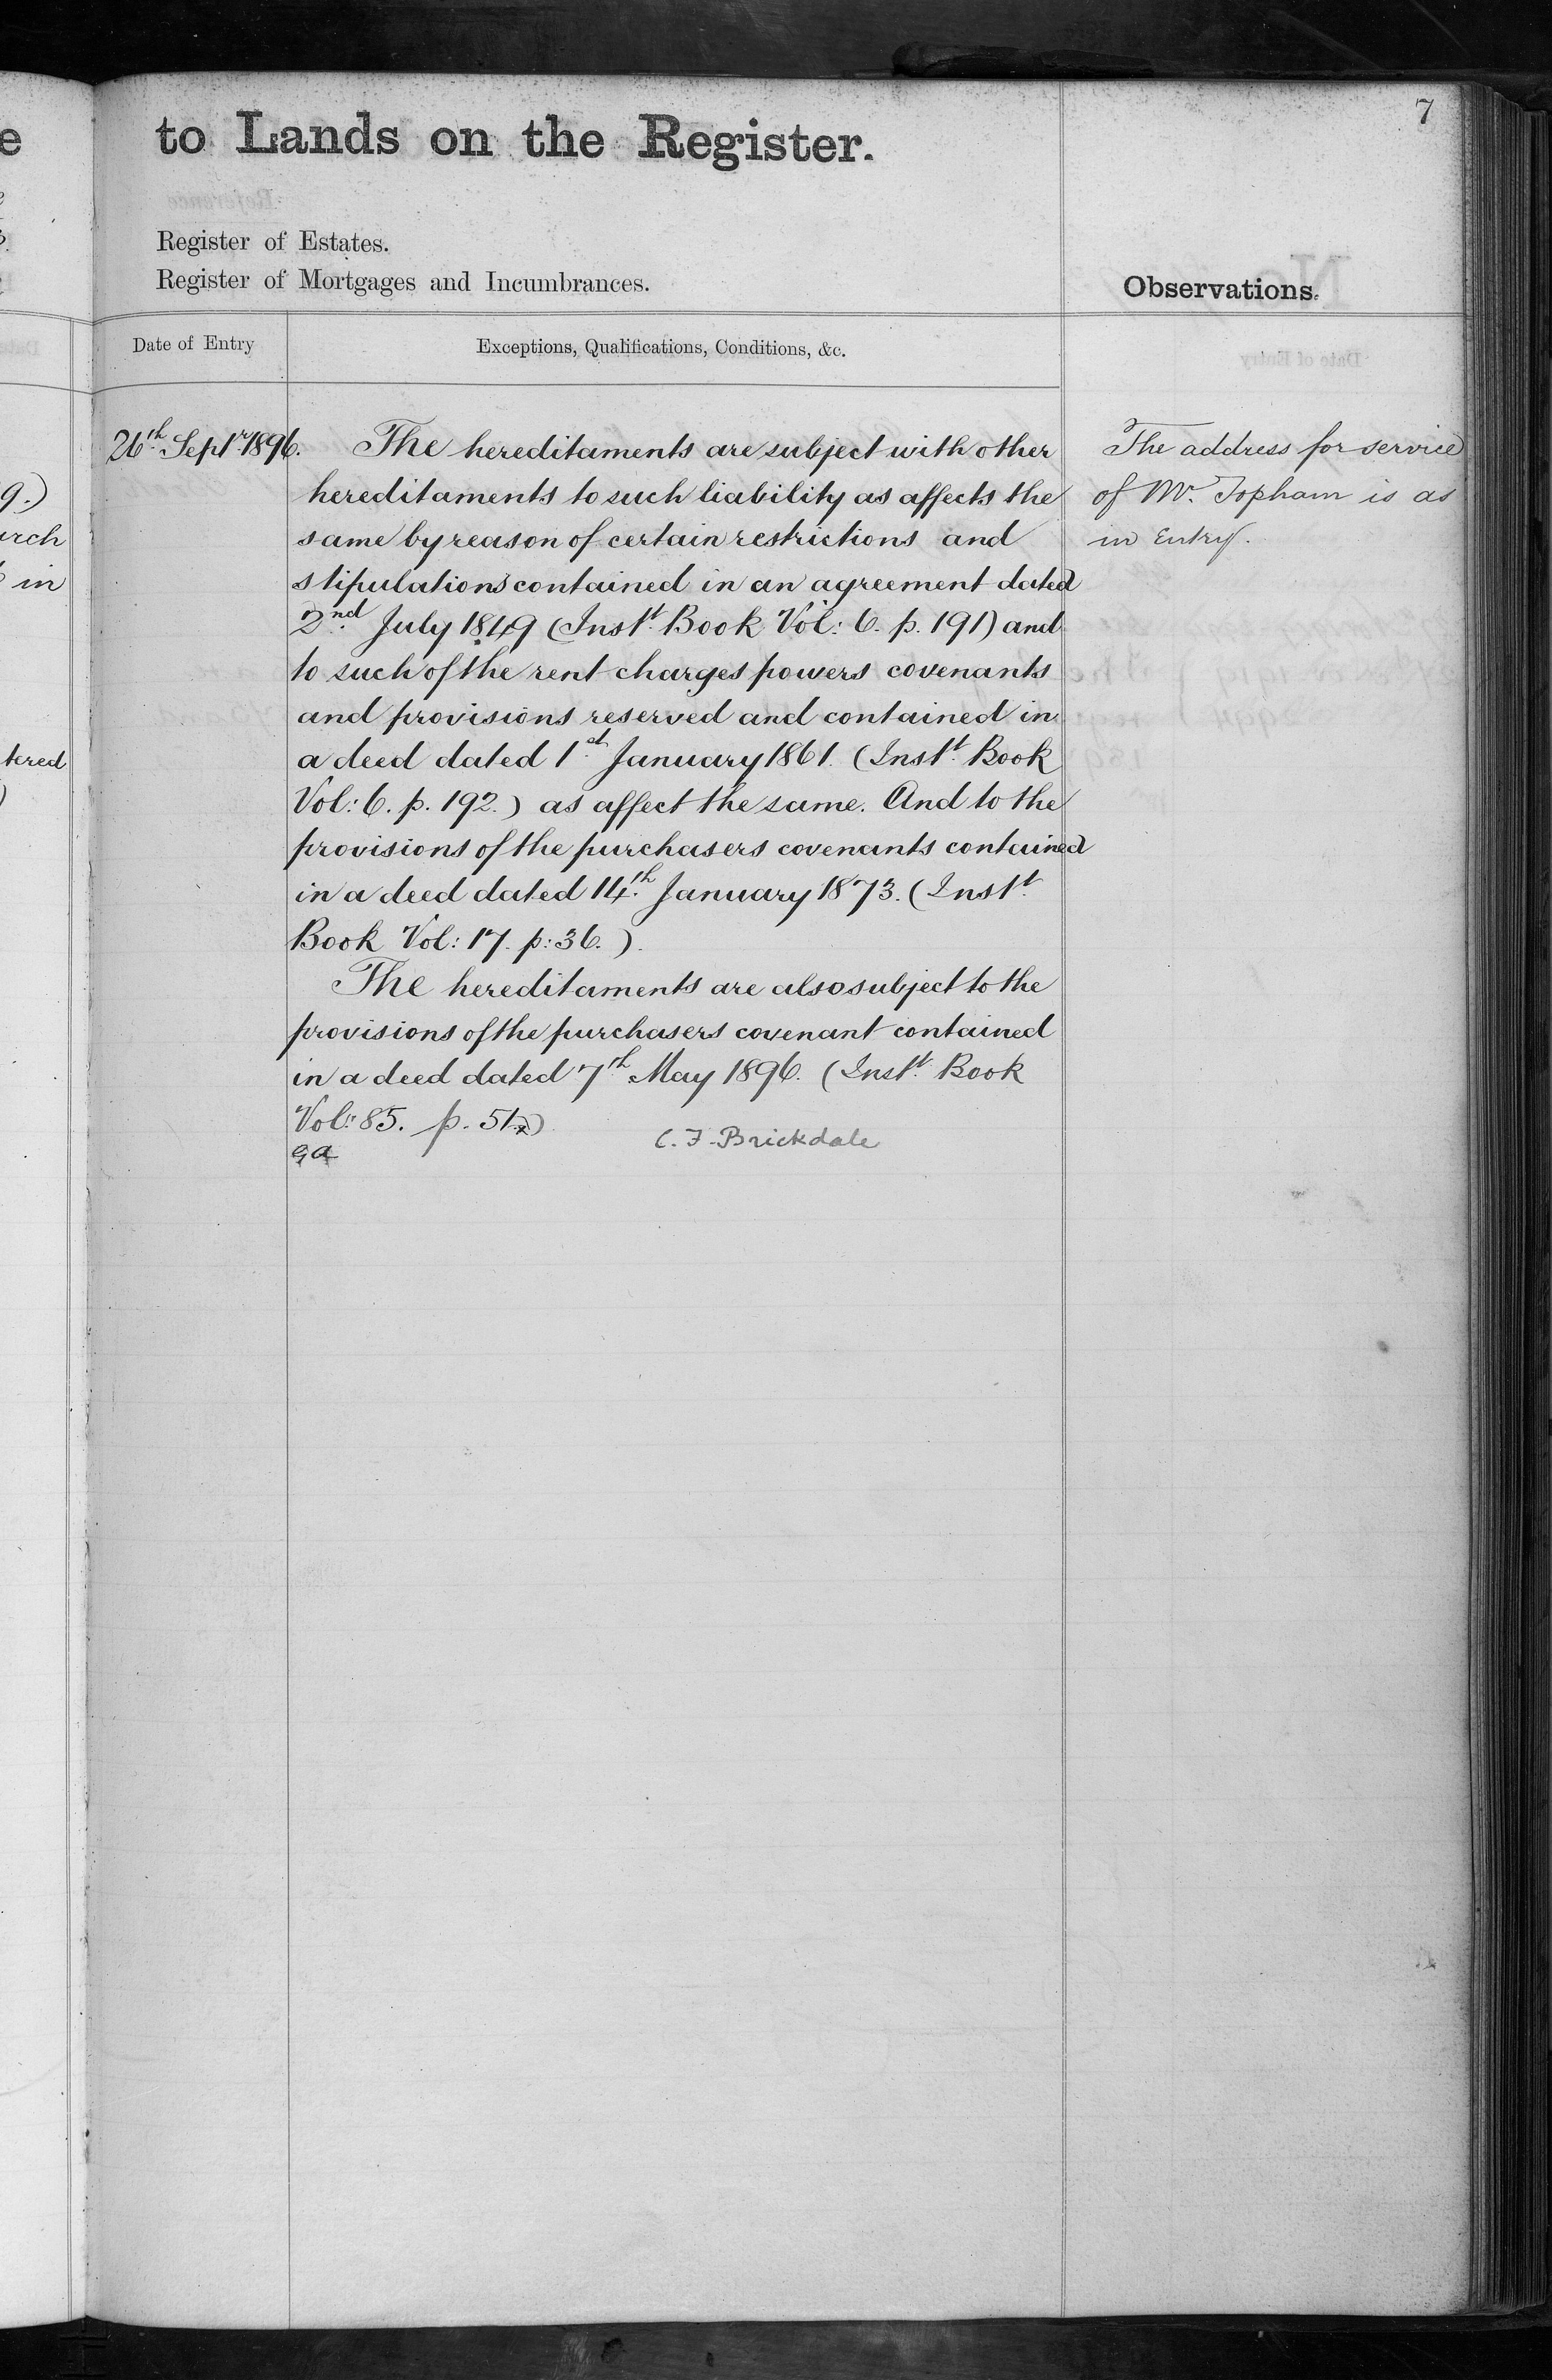 7
to Lands on the Register.
Register of Estates.
Register of Mortgages and Incumbrances.
Observations.
Date of Entry
Exceptions, Qualifications, Conditions, &c.
26th Septr 1896.
The hereditaments are subject with other
hereditaments to such liability as affects the
same by reason of certain restrictions and
stipulations contained in an agreement dated
2nd July 1849 (Instt Book Vol: 6. p. 191) and
to such of the rent charges powers covenants
and provisions reserved and contained in
a deed dated 1st January 1861. (Instt Book
Vol: 6. p. 192.) as affect the same. And to the
provisions of the purchasers covenants contained
in a deed dated 14th January 1873. (Instt
Book Vol: 17. p: 36.).
The hereditaments are also subject to the
provisions of the purchasers covenant contained
in a deed dated 7th May 1896. (Instt Book
Vol: 85. p. 51)
C. F. Brickdale
The address for service
of Mr. Topham is as
in Entry.
e
9.)
urch
in
tered
)